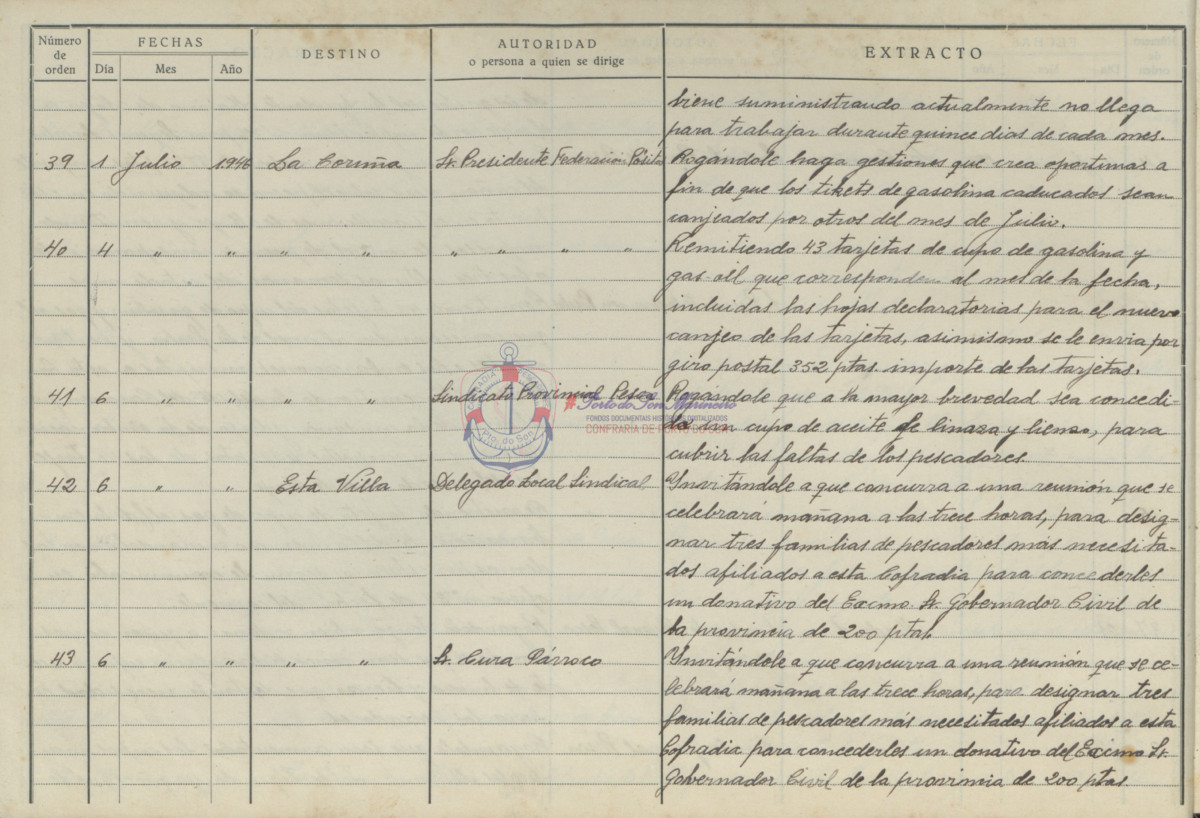 Número de orden FECHAS DESTINO AUTORIDAD o persona a quien se dirige EXTRACTO
Día Mes Año
viene suministrando actualmente no llega
para trabajar durante quince dias de cada mes.
39 1 Julio 1946 La Coruña Sr. Presidente Federación Pósitos Rogándole haga gestiones que crea oportunas a
fin de que los tikets de gasolina caducados sean
canjeados por otros del mes de Julio.
40 4 " " " " " " " " Remitiendo 43 tarjetas de cupo de gasolina y
gas-oil que corresponden al mes de la fecha,
incluidas las hojas declaratorias para el nuevo
canjeo de las tarjetas, asimismo se le envia por
giro postal 352 ptas. importe de las tarjetas.
41 6 " " " " Sindicato Provincial Pesca Rogándole que a la mayor brevedad sea concedi-
do un cupo de aceite de linaza y lienzo, para
cubrir las faltas de los pescadores.
42 6 " " Esta Villa Delegado Local Sindical Invitándole a que concurra a una reunión que se
celebrará mañana a las trece horas, para desig-
nar tres familias de pescadores más necesita-
dos afiliados a esta Cofradia para concederles
un donativo del Excmo. Sr. Gobernador Civil de
la provincia de 200 ptas.
43 6 " " " " Sr. Cura Párroco Invitándole a que concurra a una reunión que se ce-
lebrará mañana a las trece horas, para designar tres
familias de pescadores más necesitados afiliados a esta
Cofradia para concederles un donativo del Excmo Sr.
Gobernador Civil de la provincia de 200 ptas.
Pto. do Son
#Porto do Son Marineiro
FONDOS DOCUMENTAIS HISTÓRICOS DIGITALIZADOS
CONFRARÍA DE PORTO DO SON